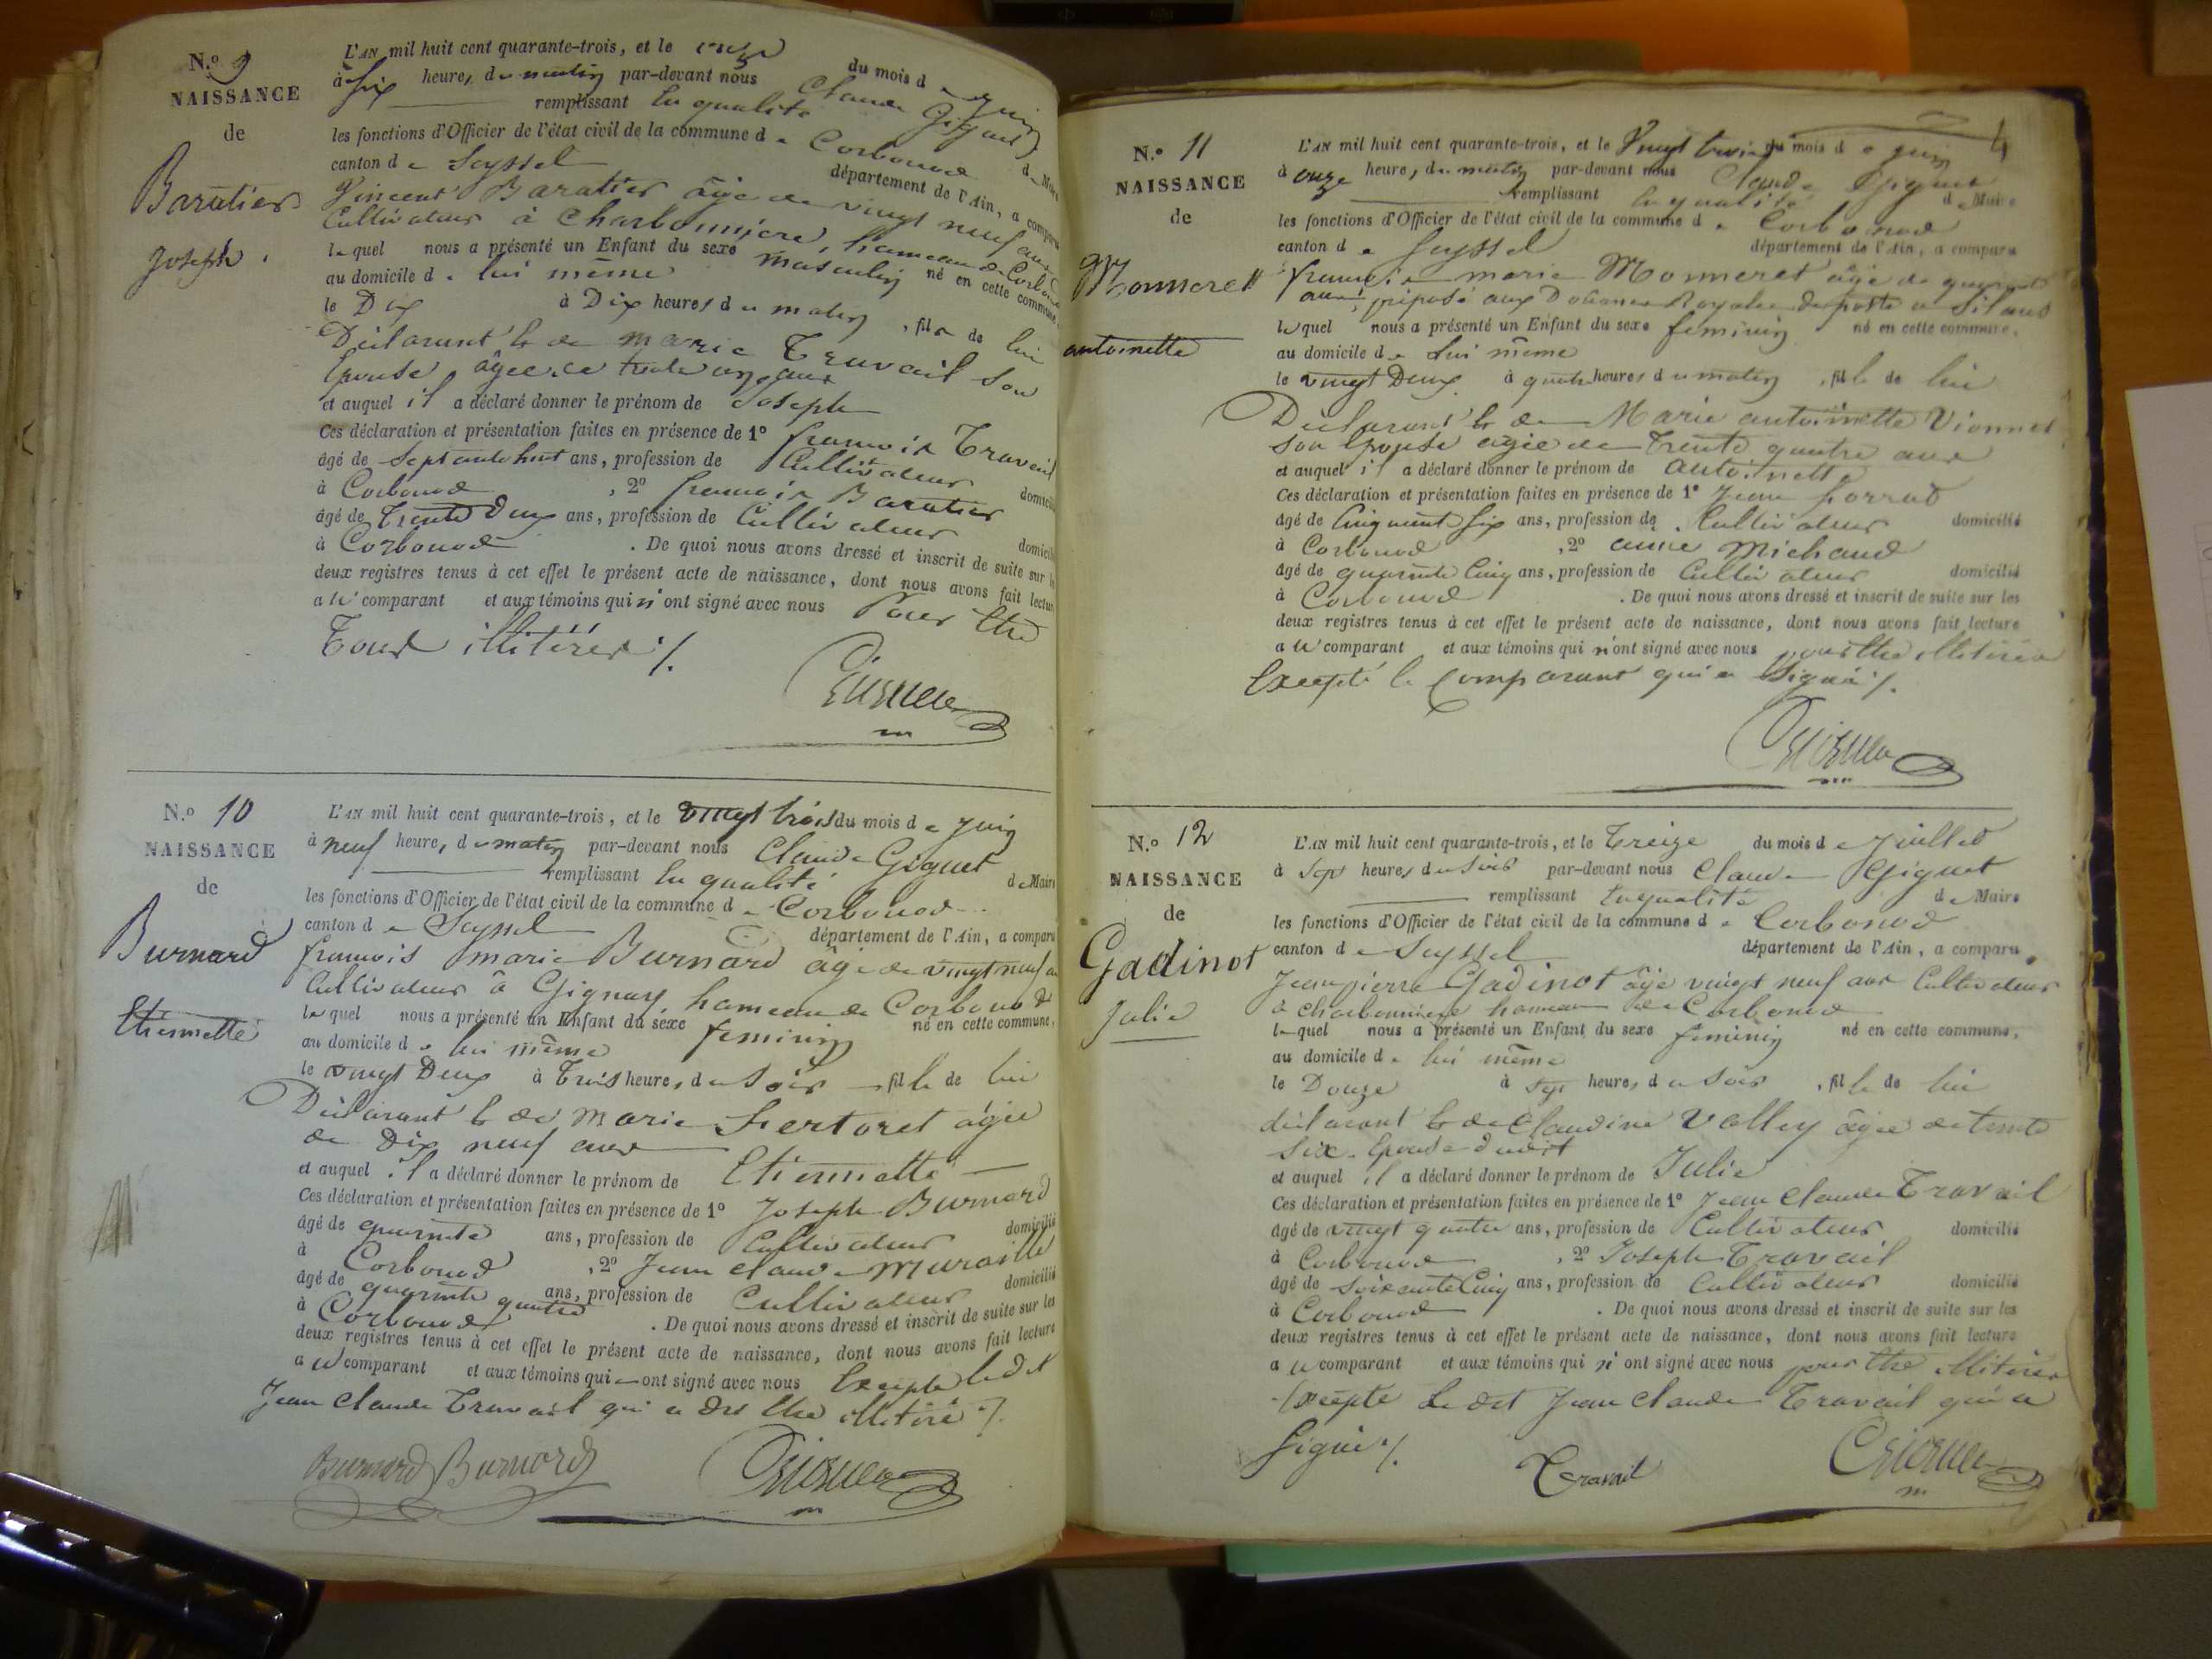 N.º 9
NAISSANCE
de
Baratier
Joseph.
L'AN mil huit cent quarante-trois, et le onze du mois de Juin
à Six heures du matin par-devant nous Claude Giguet
remplissant En qualité de Maire
les fonctions d'Officier de l'état civil de la commune de Corbonod
canton de Seyssel département de l'Ain, a comparu
Vincent Baratier âgé de vingt neuf ans
Cultivateur à Charbonniere, hameau de Corbonod
lequel nous a présenté un Enfant du sexe masculin né en cette commune
au domicile de lui même
le Dix à Dix heures du matin, fils de lui
Déclarant & de Marie Travail Son
Epouse âgée de trente ans
et auquel il a déclaré donner le prénom de Joseph
Ces déclaration et présentation faites en présence de 1º francois Travail
âgé de Septante huit ans, profession de Cultivateur domicilié
à Corbonod, 2º francois Baratier
âgé de Trente Deux ans, profession de Cultivateur domicilié
à Corbonod. De quoi nous avons dressé et inscrit de suite sur les
deux registres tenus à cet effet le présent acte de naissance, dont nous avons fait lecture
a u comparant et aux témoins qui n'ont signé avec nous Pour Etre
Tous illitérés ./.
Giguet
m
N.º 10
NAISSANCE
de
Burnard
Etiennette
L'AN mil huit cent quarante-trois, et le vingt trois du mois de Juin
à neuf heures du matin par-devant nous Claude Giguet
remplissant En qualité de Maire
les fonctions d'Officier de l'état civil de la commune de Corbonod
canton de Seyssel département de l'Ain, a comparu
francois marie Burnard âgé de vingt neuf ans
Cultivateur à Gignay hameau de Corbonod
lequel nous a présenté un Enfant du sexe feminin né en cette commune,
au domicile de lui même
le vingt Deux à Trois heures du Soir, fille de lui
Déclarant & de Marie Fertoret âgée
de Dix neuf ans
et auquel il a déclaré donner le prénom de Etiennette
Ces déclaration et présentation faites en présence de 1º Joseph Burnard
âgé de quarante ans, profession de Cultivateur domicilié
à Corbonod, 2º Jean claude Muraille
âgé de quarante quatre ans, profession de Cultivateur domicilié
à Corbonod. De quoi nous avons dressé et inscrit de suite sur les
deux registres tenus à cet effet le présent acte de naissance, dont nous avons fait lecture
a u comparant et aux témoins qui ont signé avec nous Excepté ledit
Jean Claude Travail qui a dit Etre illitéré ./.
Burnard Burnard
Giguet
m
4
N.º 11
NAISSANCE
de
Monneret
antoinette
L'AN mil huit cent quarante-trois, et le Vingt trois du mois de juin
à onze heures du matin par-devant nous Claude Giguet
remplissant En qualité de Maire
les fonctions d'Officier de l'état civil de la commune de Corbonod
canton de Seyssel département de l'Ain, a comparu
francois marie Monneret âgé de quarante
ans, préposé aux Douanes Royales de poste a Silans
lequel nous a présenté un Enfant du sexe feminin né en cette commune,
au domicile de Lui même
le vingt Deux à quatre heures du matin, fille de lui
Déclarant & de Marie antoinette Vionnet
son Epouse agée de Trente quatre ans
et auquel il a déclaré donner le prénom de antoinette
Ces déclaration et présentation faites en présence de 1º Jean Forrat
âgé de Cinquante Six ans, profession de Cultivateur domicilié
à Corbonod, 2º anne Michaud
âgé de quarante Cinq ans, profession de Cultivateur domicilié
à Corbonod. De quoi nous avons dressé et inscrit de suite sur les
deux registres tenus à cet effet le présent acte de naissance, dont nous avons fait lecture
a u comparant et aux témoins qui n'ont signé avec nous pour Etre illitérés
Excepté le Comparant qui a Signé ./.
Giguet
m
N.º 12
NAISSANCE
de
Gadinot
Julie
L'AN mil huit cent quarante-trois, et le Treize du mois de Juillet
à Sept heures du Soir par-devant nous Claude Giguet
remplissant En qualité de Maire
les fonctions d'Officier de l'état civil de la commune de Corbonod
canton de Seyssel département de l'Ain, a comparu
Jean pierre Gadinot âgé vingt neuf ans Cultivateur
à Charbonniere hameau de Corbonod
lequel nous a présenté un Enfant du sexe feminin né en cette commune,
au domicile de lui même
le Douze à Sept heures du Soir, fille de lui
déclarant & de Claudine Valley âgée de trente
six. Epouse
et auquel il a déclaré donner le prénom de Julie
Ces déclaration et présentation faites en présence de 1º Jean claude Travail
âgé de vingt quatre ans, profession de Cultivateur domicilié
à Corbonod, 2º Joseph Travail
âgé de soixante Cinq ans, profession de Cultivateur domicilié
à Corbonod. De quoi nous avons dressé et inscrit de suite sur les
deux registres tenus à cet effet le présent acte de naissance, dont nous avons fait lecture
a u comparant et aux témoins qui n'ont signé avec nous pour Etre illitérés
Excepté Le dit Jean claude Travail qui a
Signé ./.
Travail
Giguet
m